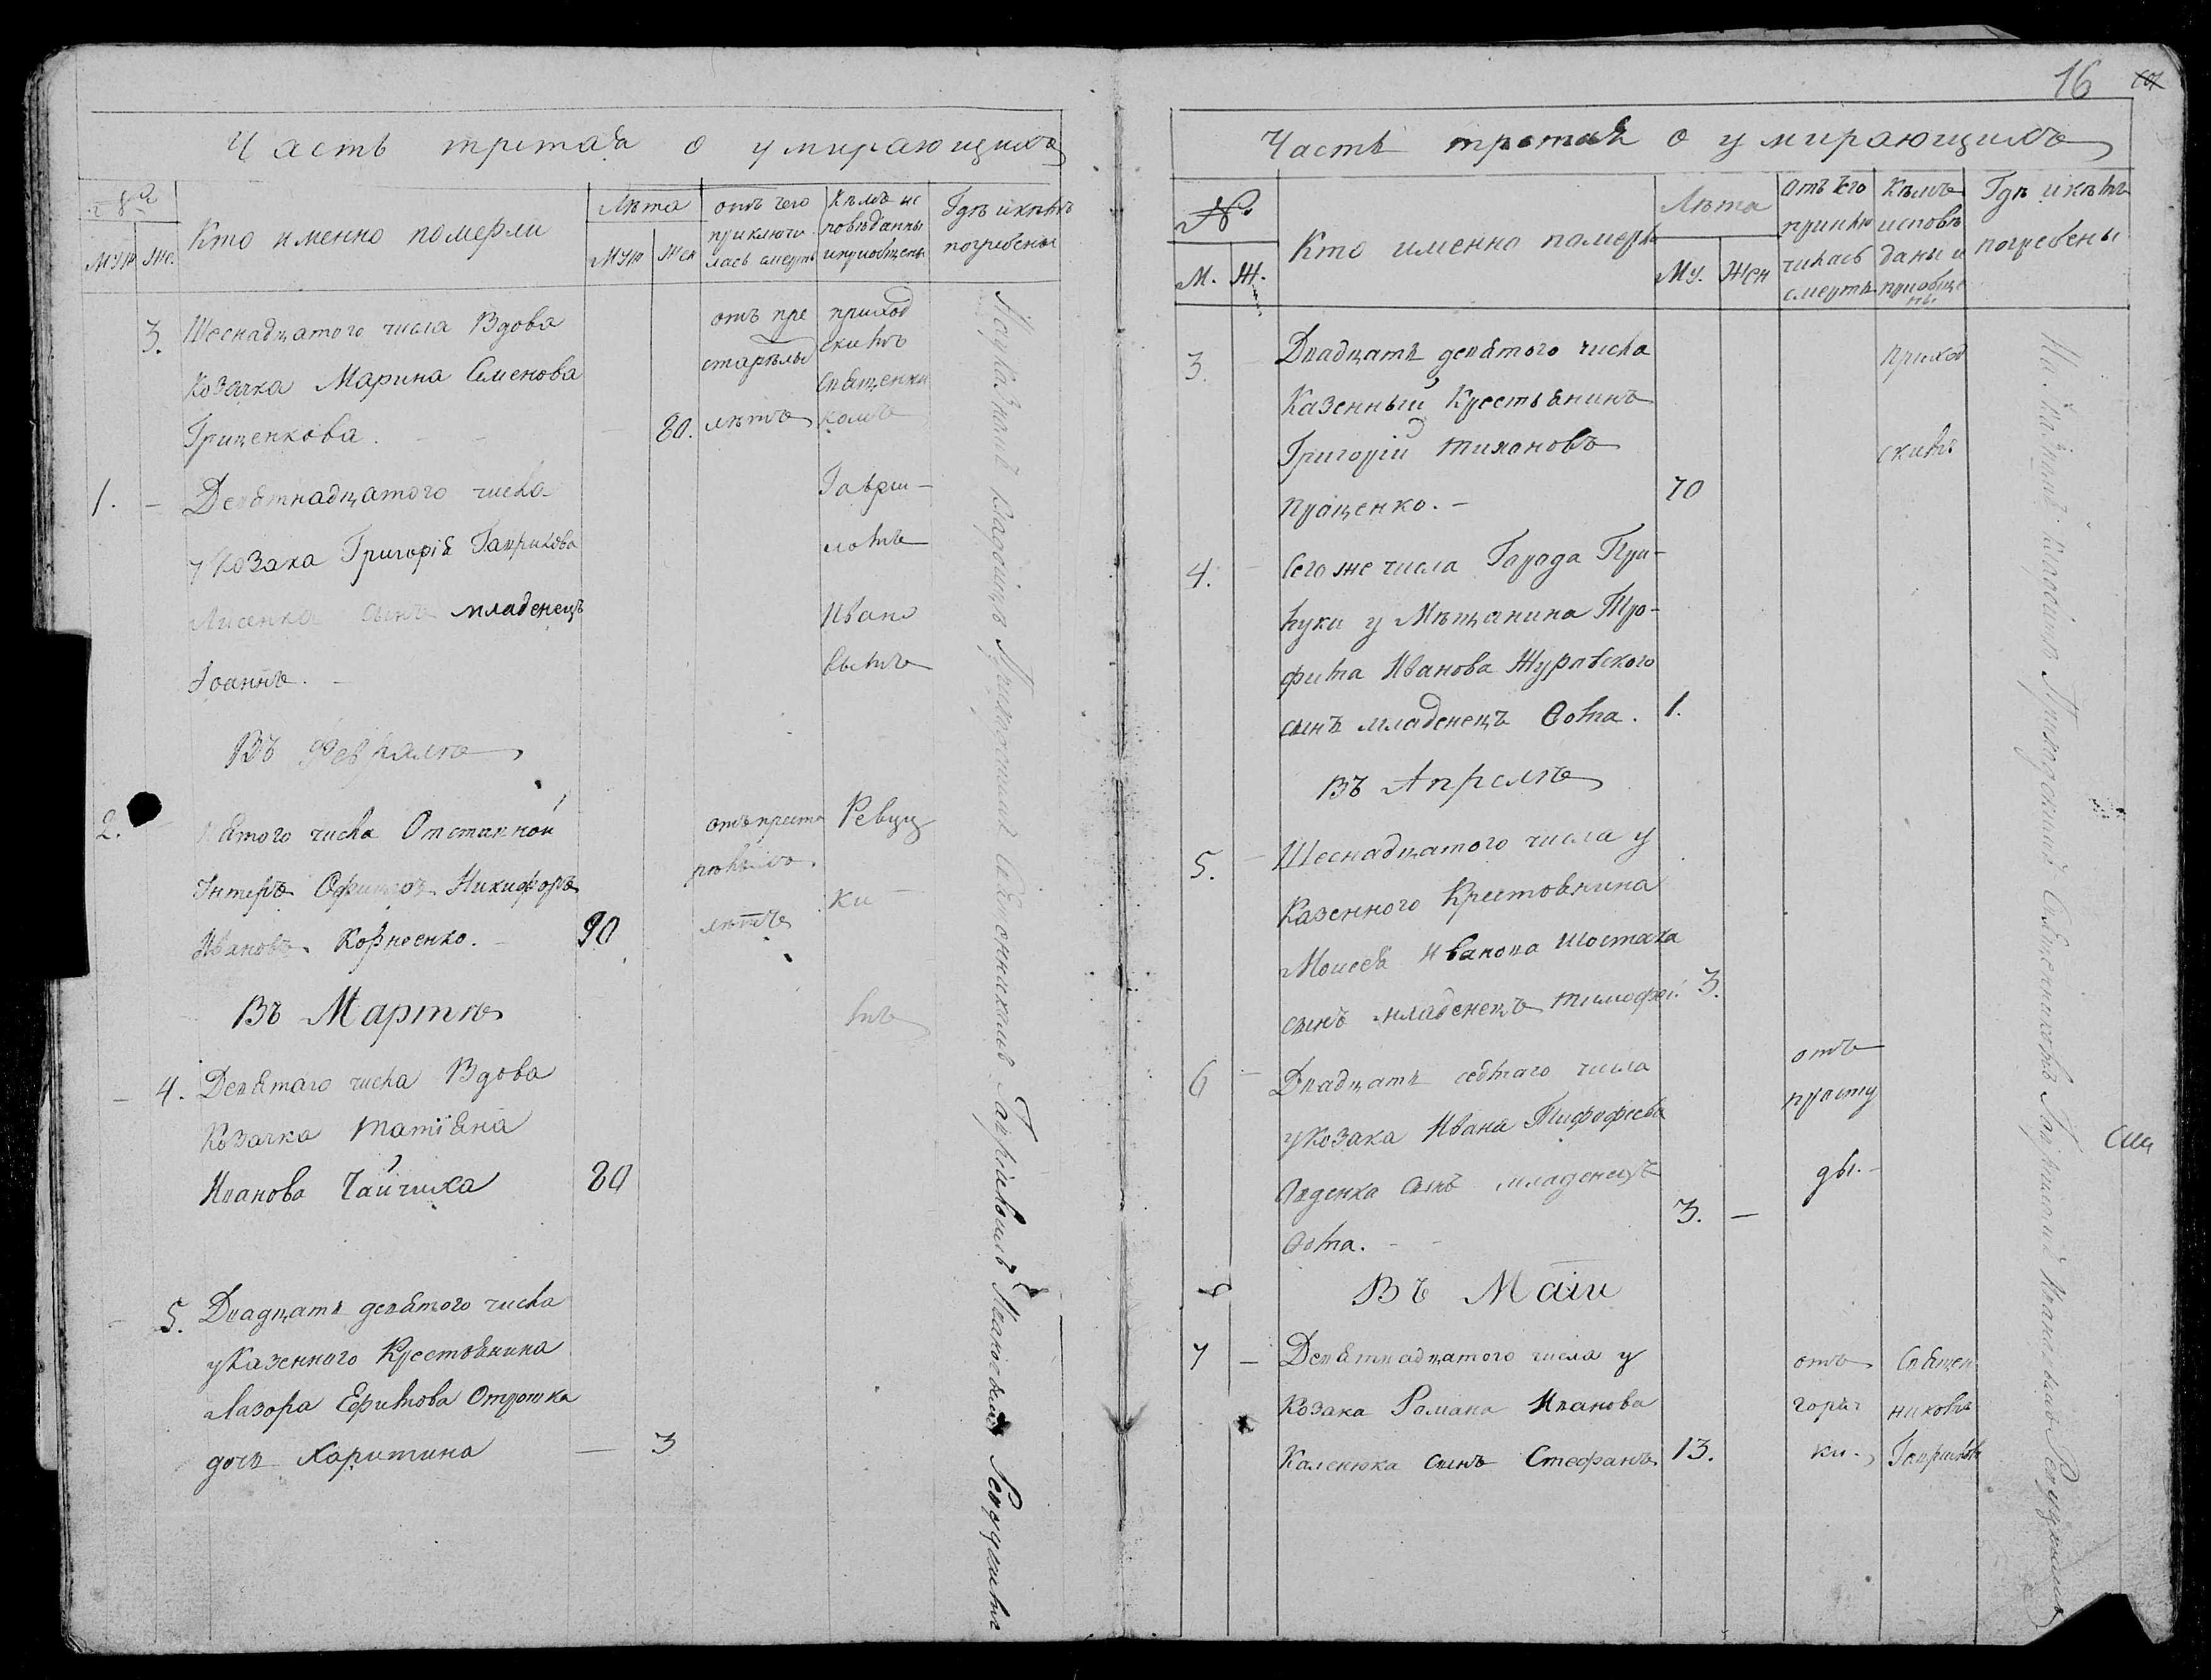 Часть третая о умирающихъ
Муж Же.
Кто именно померли
Лѣта
Муж Жен
отъ чего
приключи
лась смерть
Кѣмъ ис
повѣданны
и приобщены
Гдѣ и кѣмъ
погребены
3. Шеснадцатого числа Вдова
Козачка Марина Семенова
Гриценкова. 80.
отъ пре
старѣлы
лѣтъ
приход
скимъ
Священни
комъ
1. – Девятнадцатого числа
у Козака Григорія Гаврилова
Лисенка сынъ младенецъ
Іоаннъ. –
Гаври–
ломъ
Ивано
вымъ
Въ Февралѣ
2. Пятого числа Отставной
Унтеръ Офицеръ Никифоръ
Ивановъ Корнеенко. – 90
отъ преста
рѣлыхъ
лѣтъ
Ревуц
ки
мъ
Въ Мартѣ
– 4. Девятаго числа Вдова
Козачка Татіяна
Иванова Чайчиха 80
– 5. Двадцать девятого числа
у Казенного Крестьянина
Лазора Ефимова
дочь Харитина — 3
На указномъ кладбищѣ Приходскимъ Священникомъ Гавріиломъ Ивановымъ Ревуцкимъ
16
Часть третая о умирающихъ
№
М. Ж.
Кто именно померли
Лѣта
Му. Жен
Отъ чего
приклю
чилась
смерть
Кѣмъ
исповѣ
даны и
приобще
ны
Гдѣ и кѣмъ
погребены
3. Двадцать девятого числа
Казенный Крестьянинъ
Григорій Тихоновъ
Проценко. – 70
приход
скимъ
4. Сего же числа Города При–
луки у Мѣщанина Тро–
фима Иванова Журавского
сынъ младенецъ Ѳома. 1.
Въ Апрелѣ
5. Шеснадцатого числа у
Казенного Крестьянина
Моисея Иванова Шостака
сынъ младенецъ Тимофей 3.
6 Двадцать седмаго числа
у Козака Ивана
сынъ младенецъ
Ѳома. – – 3. —
отъ
просту
ды. –
Въ Маіи
7 – Девятнадцатого числа у
Козака Романа Иванова
Каленюка сынъ Стефанъ 13.
отъ
горяч
ки.
Священ
никомъ
Гавриломъ
На указномъ кладбищѣ Приходскимъ Священникомъ Гавріиломъ Ивановымъ Ревуцкимъ